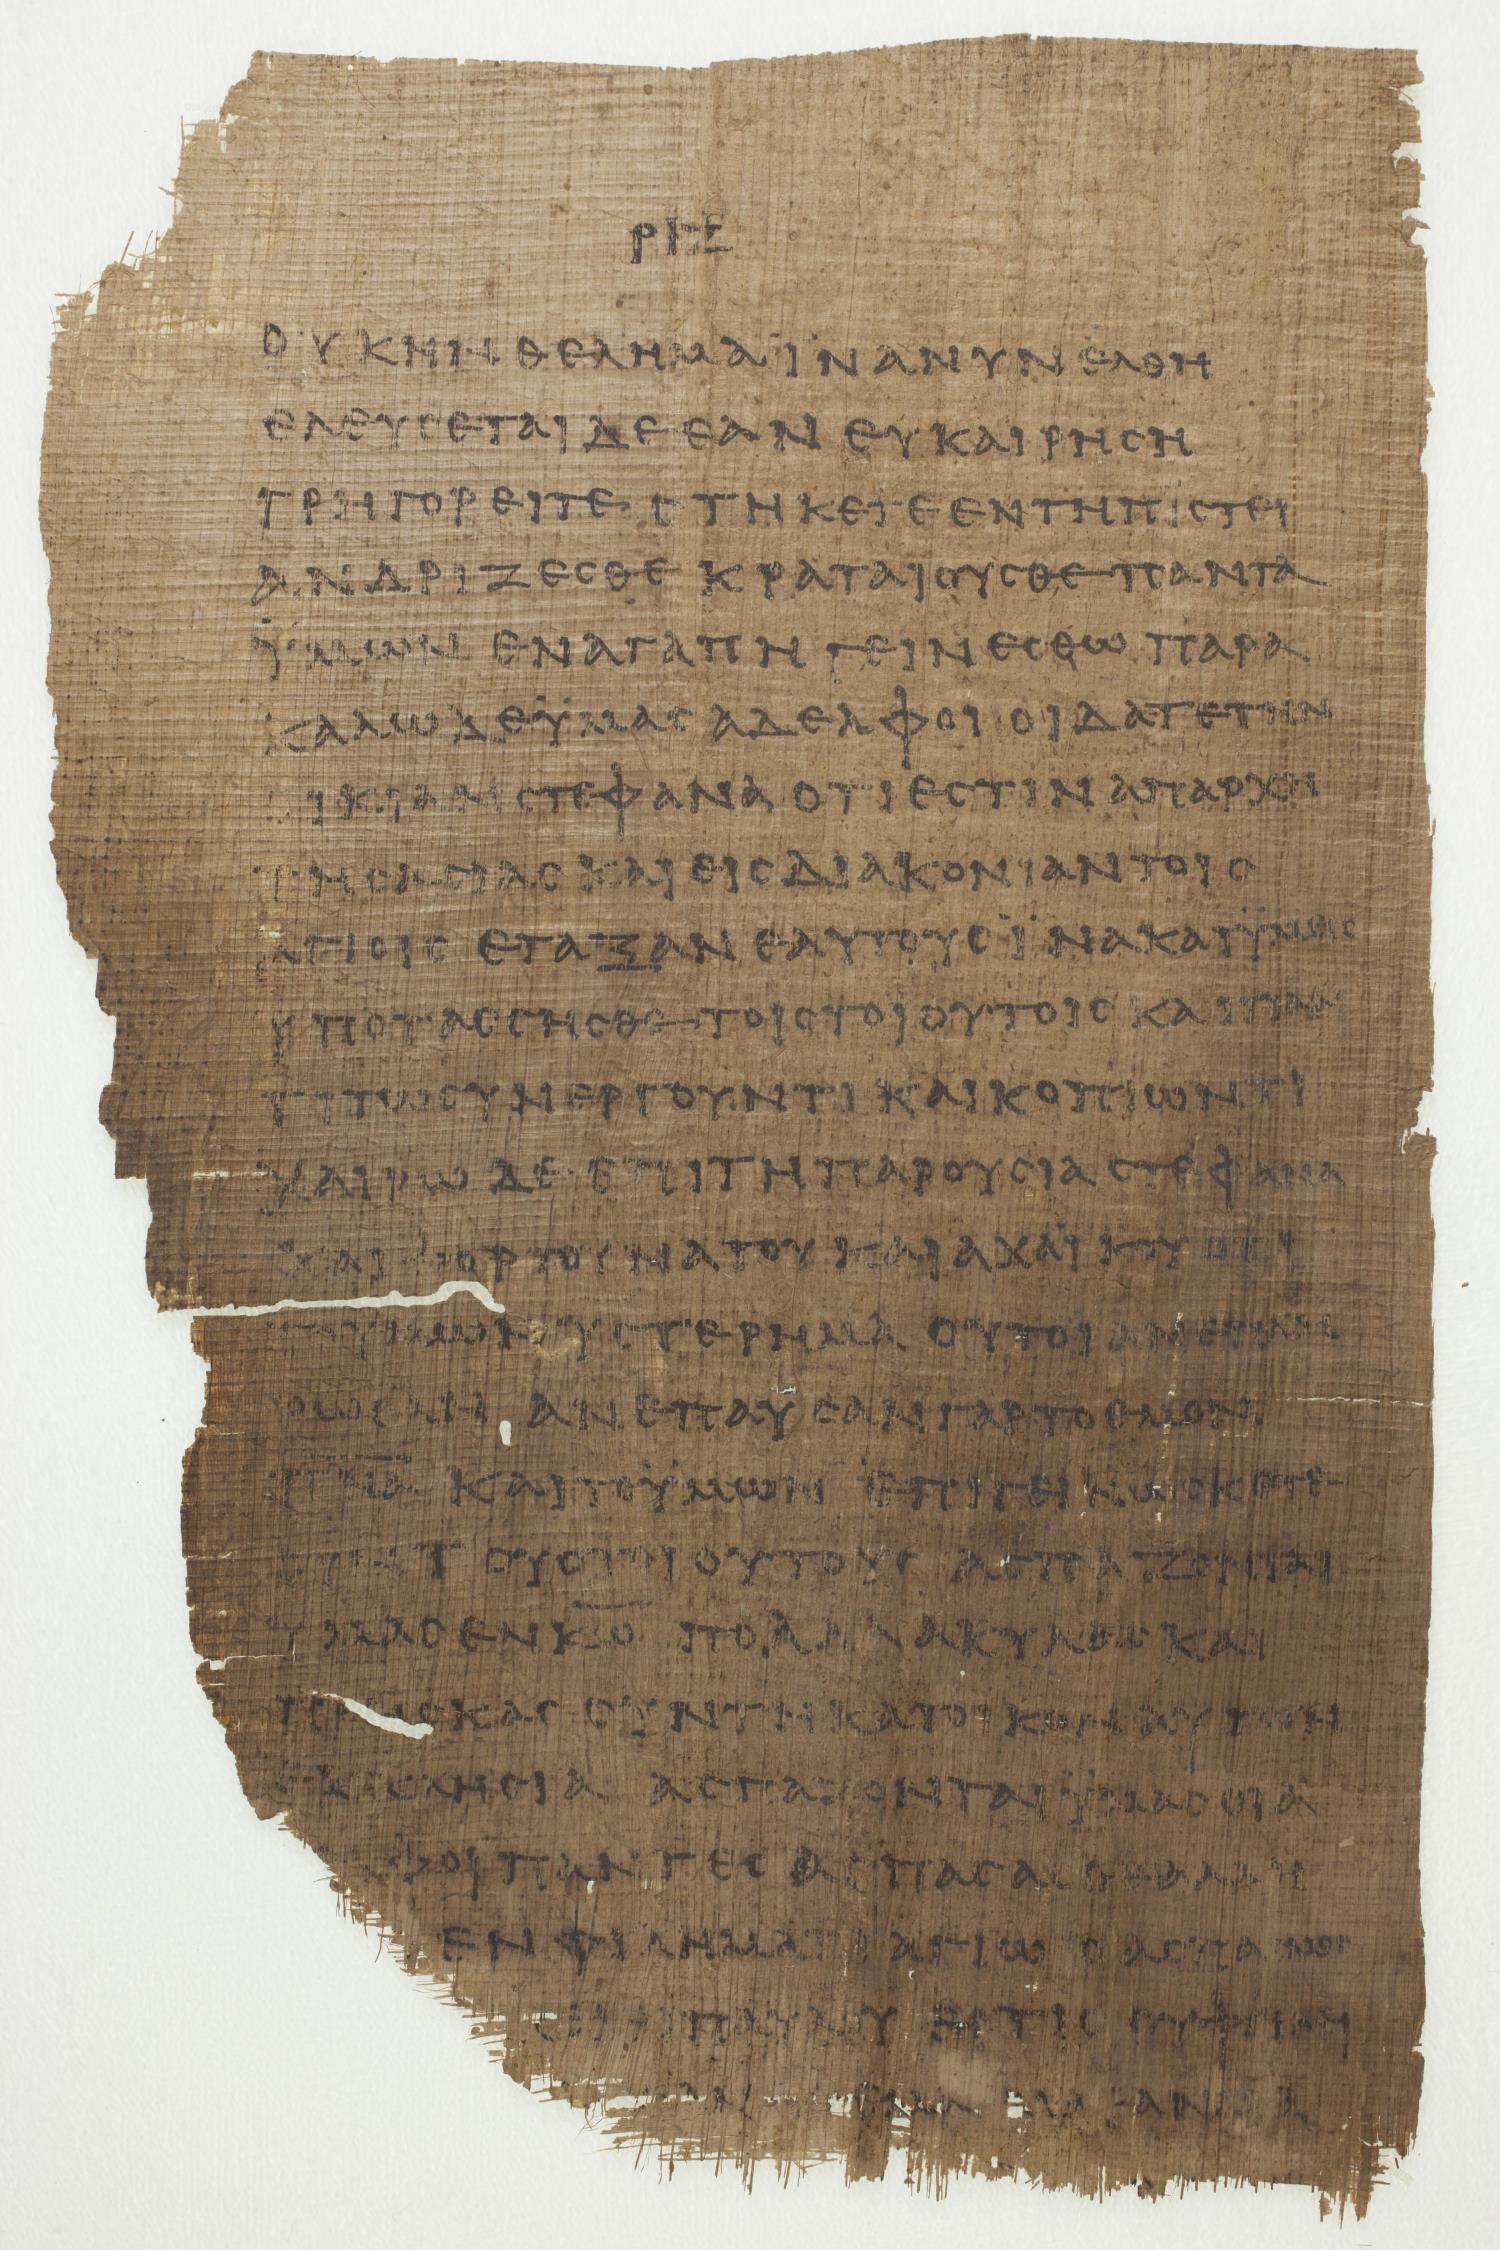 ΡΙΕ
ΟΥΚ ΗΝ ΘΕΛΗΜΑ ΪΝΑ ΝΥΝ ΕΛΘΗ
ΕΛΕΥϹΕΤΑΙ ΔΕ ΕΑΝ ΕΥΚΑΙΡΗϹΗ
ΓΡΗΓΟΡΕΙΤΕ ϹΤΗΚΕΤΕ ΕΝ ΤΗ ΠΙϹΤΕΙ
ΑΝΔΡΙΖΕϹΘΕ ΚΡΑΤΑΙΟΥϹΘΕ ΠΑΝΤΑ
ΫΜΩΝ ΕΝ ΑΓΑΠΗ ΓΕΙΝΕϹΘΩ ΠΑΡΑ
ΚΑΛΩ ΔΕ ΫΜΑϹ ΑΔΕΛΦΟΙ ΟΙΔΑΤΕ ΤΗΝ
ΙΚΙΑΝ ϹΤΕΦΑΝΑ ΟΤΙ ΕϹΤΙΝ ΑΠΑΡΧΗ
ΤΗϹ ΑϹΙΑϹ ΚΑΙ ΕΙϹ ΔΙΑΚΟΝΙΑΝ ΤΟΙϹ
ΑΓΙΟΙϹ ΕΤΑΞΑΝ ΕΑΥΤΟΥϹ ΪΝΑ ΚΑΙ ΫΜΕΙϹ
ΥΠΟΤΑϹϹΗϹΘΕ ΤΟΙϹ ΤΟΙΟΥΤΟΙϹ ΚΑΙ ΠΑΝ
ΤΙ ΤΩ ϹΥΝΕΡΓΟΥΝΤΙ ΚΑΙ ΚΟΠΙΩΝΤΙ
ΧΑΙΡΩ ΔΕ ΕΠΙ ΤΗ ΠΑΡΟΥϹΙΑ ϹΤΕΦΑΝΑ
ΚΑΙ ΦΟΡΤΟΥΝΑΤΟΥ ΚΑΙ ΑΧΑΪΚΟΥ ΟΤΙ
ΥΜΩΝ ΥϹΤΕΡΗΜΑ ΟΥΤΟΙ ΑΝΕΠΛΗ
ΡΩϹΑΝ ΑΝΕΠΑΥϹΑΝ ΓΑΡ ΤΟ ΕΜΟΝ
Π̅Ν̅Α̅ ΚΑΙ ΤΟ ΫΜΩΝ ΕΠΙΓΕΙΝΩϹΚΕΤΕ
ΟΥΝ ΤΟΥϹ ΤΟΙΟΥΤΟΥϹ ΑϹΠΑΖΟΝΤΑΙ
ΥΜΑϹ ΕΝ Κ̅Ω̅ ΠΟΛΛΑ ΑΚΥΛΑϹ ΚΑΙ
ΠΡΕΙϹΚΑϹ ϹΥΝ ΤΗ ΚΑΤ ΟΙΚΟΝ ΑΥΤΩΝ
ΕΚΚΛΗϹΙΑ ΑϹΠΑΖΟΝΤΑΙ ΫΜΑϹ ΟΙ Α
ΦΟΙ ΠΑΝΤΕϹ ΑϹΠΑϹΑϹΘΕ ΑΛΛΗ
ΕΝ ΦΙΛΗΜΑΤΙ ΑΓΙΩ Ο ΑϹΠΑϹΜΟϹ
ΠΑΥΛΟΥ ΕΙ ΤΙϹ ΟΥ ΦΙΛΕΙ